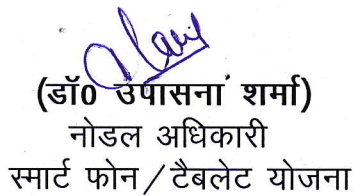 (डॉ0 उपासना शर्मा)
नोडल अधिकारी
स्मार्ट फोन / टैबलेट योजना